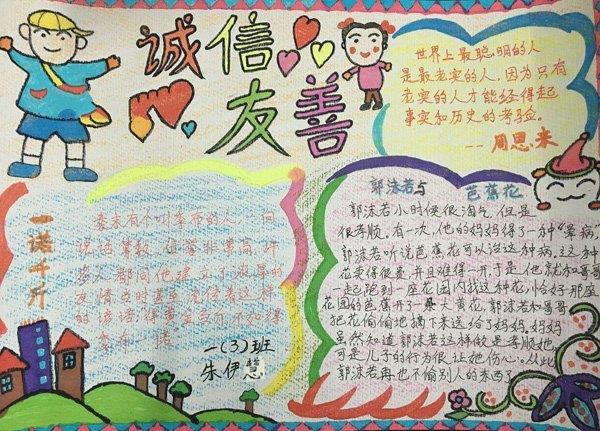 诚信
友善
世界上最聪明的人
是最老实的人,因为只有
老实的人才能经得起
事实和历史的考验。
--周恩来
一诺千斤
秦末有个叫季布的人,一向
说话算数,信誉非常高,许
多人都同他建立了浓厚的
友情。当时甚至流传着这样
的谚语:得黄金百斤,不如得
季布一诺。
一(3)班
朱伊慧
郭沫若与 芭蕉花
郭沫若小时候很淘气,但是
很孝顺。有一次,他的妈妈得了一种"晕病"
郭沫若听说芭蕉花可以治这种病。这种
花卖得很贵,并且难得一开,于是,他就和哥哥
一起跑到一座花园内找这种花,恰好那座
花园的芭蕉开了一朵大黄花,郭沫若和哥哥
把花偷偷地摘下来送给了妈妈。妈妈
虽然知道郭沫若这样做是孝顺她,
可是儿子的行为很让她伤心。从此
郭沫若再也不偷别人的东西了